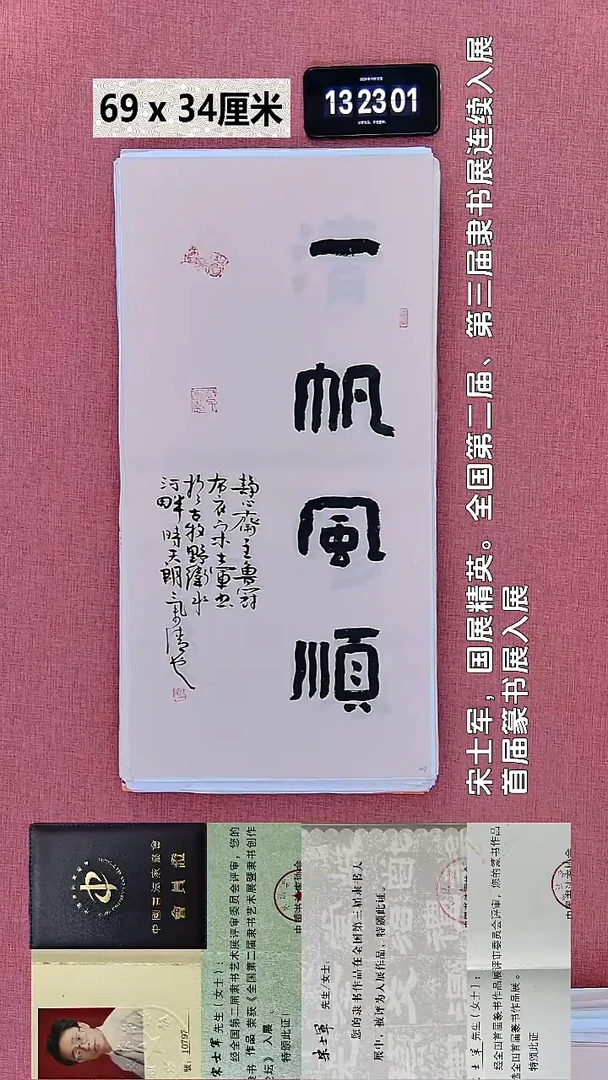 69 x 34厘米
13 23 01
一帆風順
静心斋主鲁冠
宋士軍书
於古牧野衛水
河畔時天朗氣清也
宋士军，国展精英。全国第二届、第三届隶书展连续入展
首届篆书展入展
中國書法家協會
會員證
號：10797
宋士軍先生(女士)：
经全国第二届隶书艺术展评审委员会评审，您的
隶书作品荣获《全国第二届隶书艺术展暨隶书创作
论坛》入展。
特颁此证!
宋士軍先生/女士：
您的隶书作品在全国第三届隶书大
展中，被评为入展作品，特颁此证。
士軍先生(女士)：
经全国首届篆书作品展评审委员会评审，您的篆书作品
选全国首届篆书作品展。
特颁此证